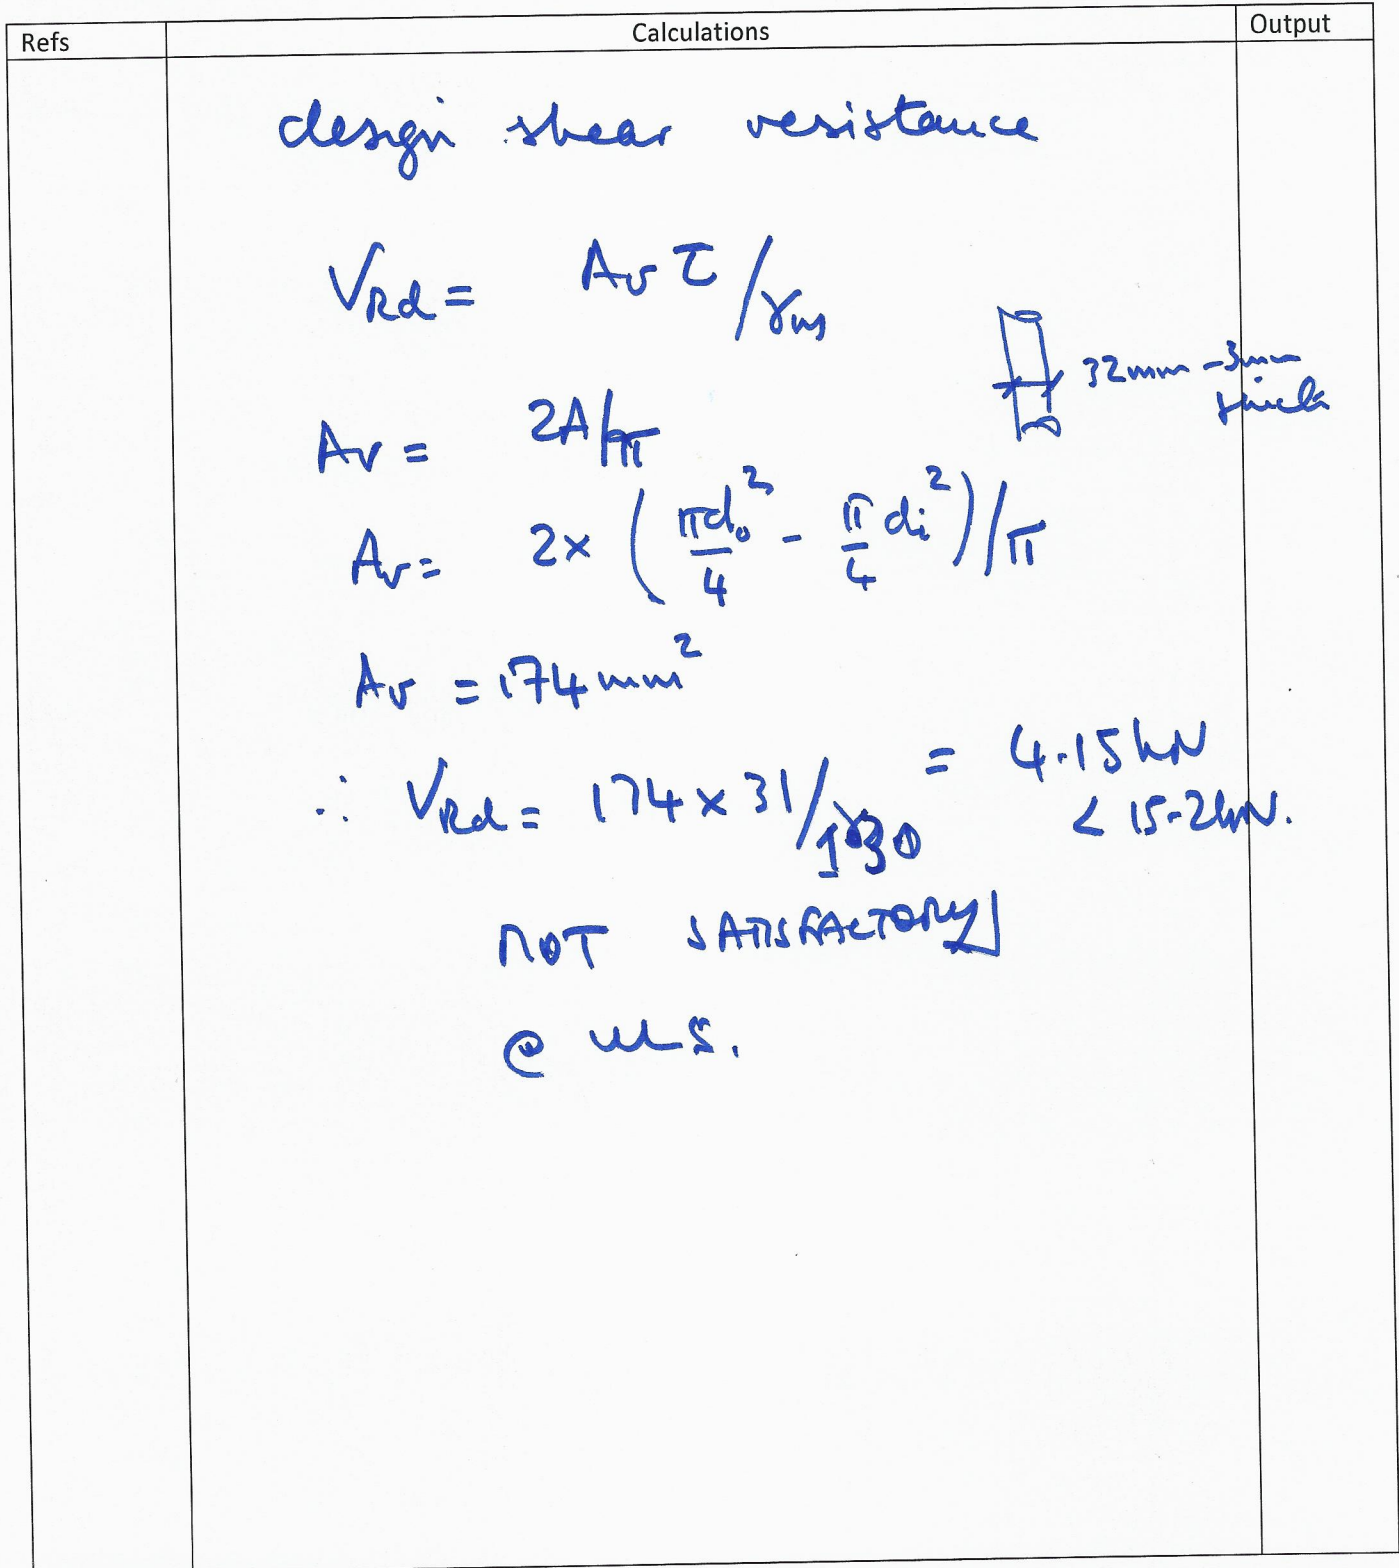 Refs Calculations Output
design shear resistance
V_Rd = A_v τ / γ_m
32mm - 3mm
A_v = 2A/π
A_v = 2 × (πd_o²/4 - π/4 d_i²)/π
A_v = 174 mm²
∴ V_Rd = 174 × 31 / 1.30 = 4.15 kN
< 15.2 kN.
NOT SATISFACTORY
@ ULS.